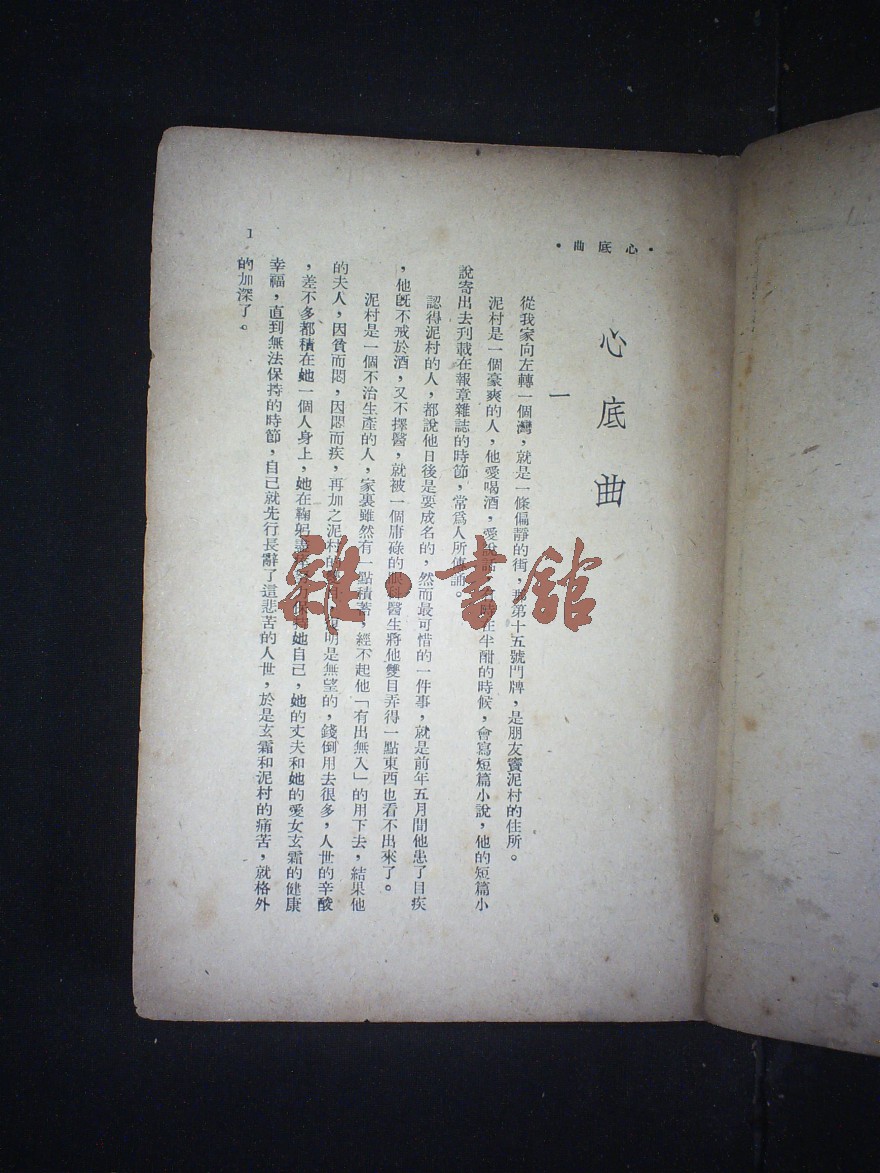 •心底曲•
心底曲
一
從我家向左轉一個灣，就是一條偏靜的街，那第十五號門牌，是朋友竇泥村的住所。
泥村是一個豪爽的人，他愛喝酒，愛說話，有時在半酣的時候，會寫短篇小說，他的短篇小
說寄出去刋載在報章雜誌的時節，常爲人所傳誦。
認得泥村的人，都說他日後是要成名的，然而最可惜的一件事，就是前年五月間他患了目疾
，他旣不戒於酒，又不擇醫，就被一個庸碌的眼科醫生將他雙目弄得一點東西也看不出來了。
泥村是一個不治生產的人，家裏雖然有一點積蓄，經不起他「有出無入」的用下去，結果他
的夫人，因貧而悶，因悶而疾，再加之泥村的明是無望的，錢倒用去很多，人世的辛酸
，差不多都積在她一個人身上，她在鞠躬保持她自己，她的丈夫和她的愛女玄霜的健康
幸福，直到無法保持的時節，自己就先行長辭了這悲苦的人世，於是玄霜和泥村的痛苦，就格外
的加深了。
1
雜·書館